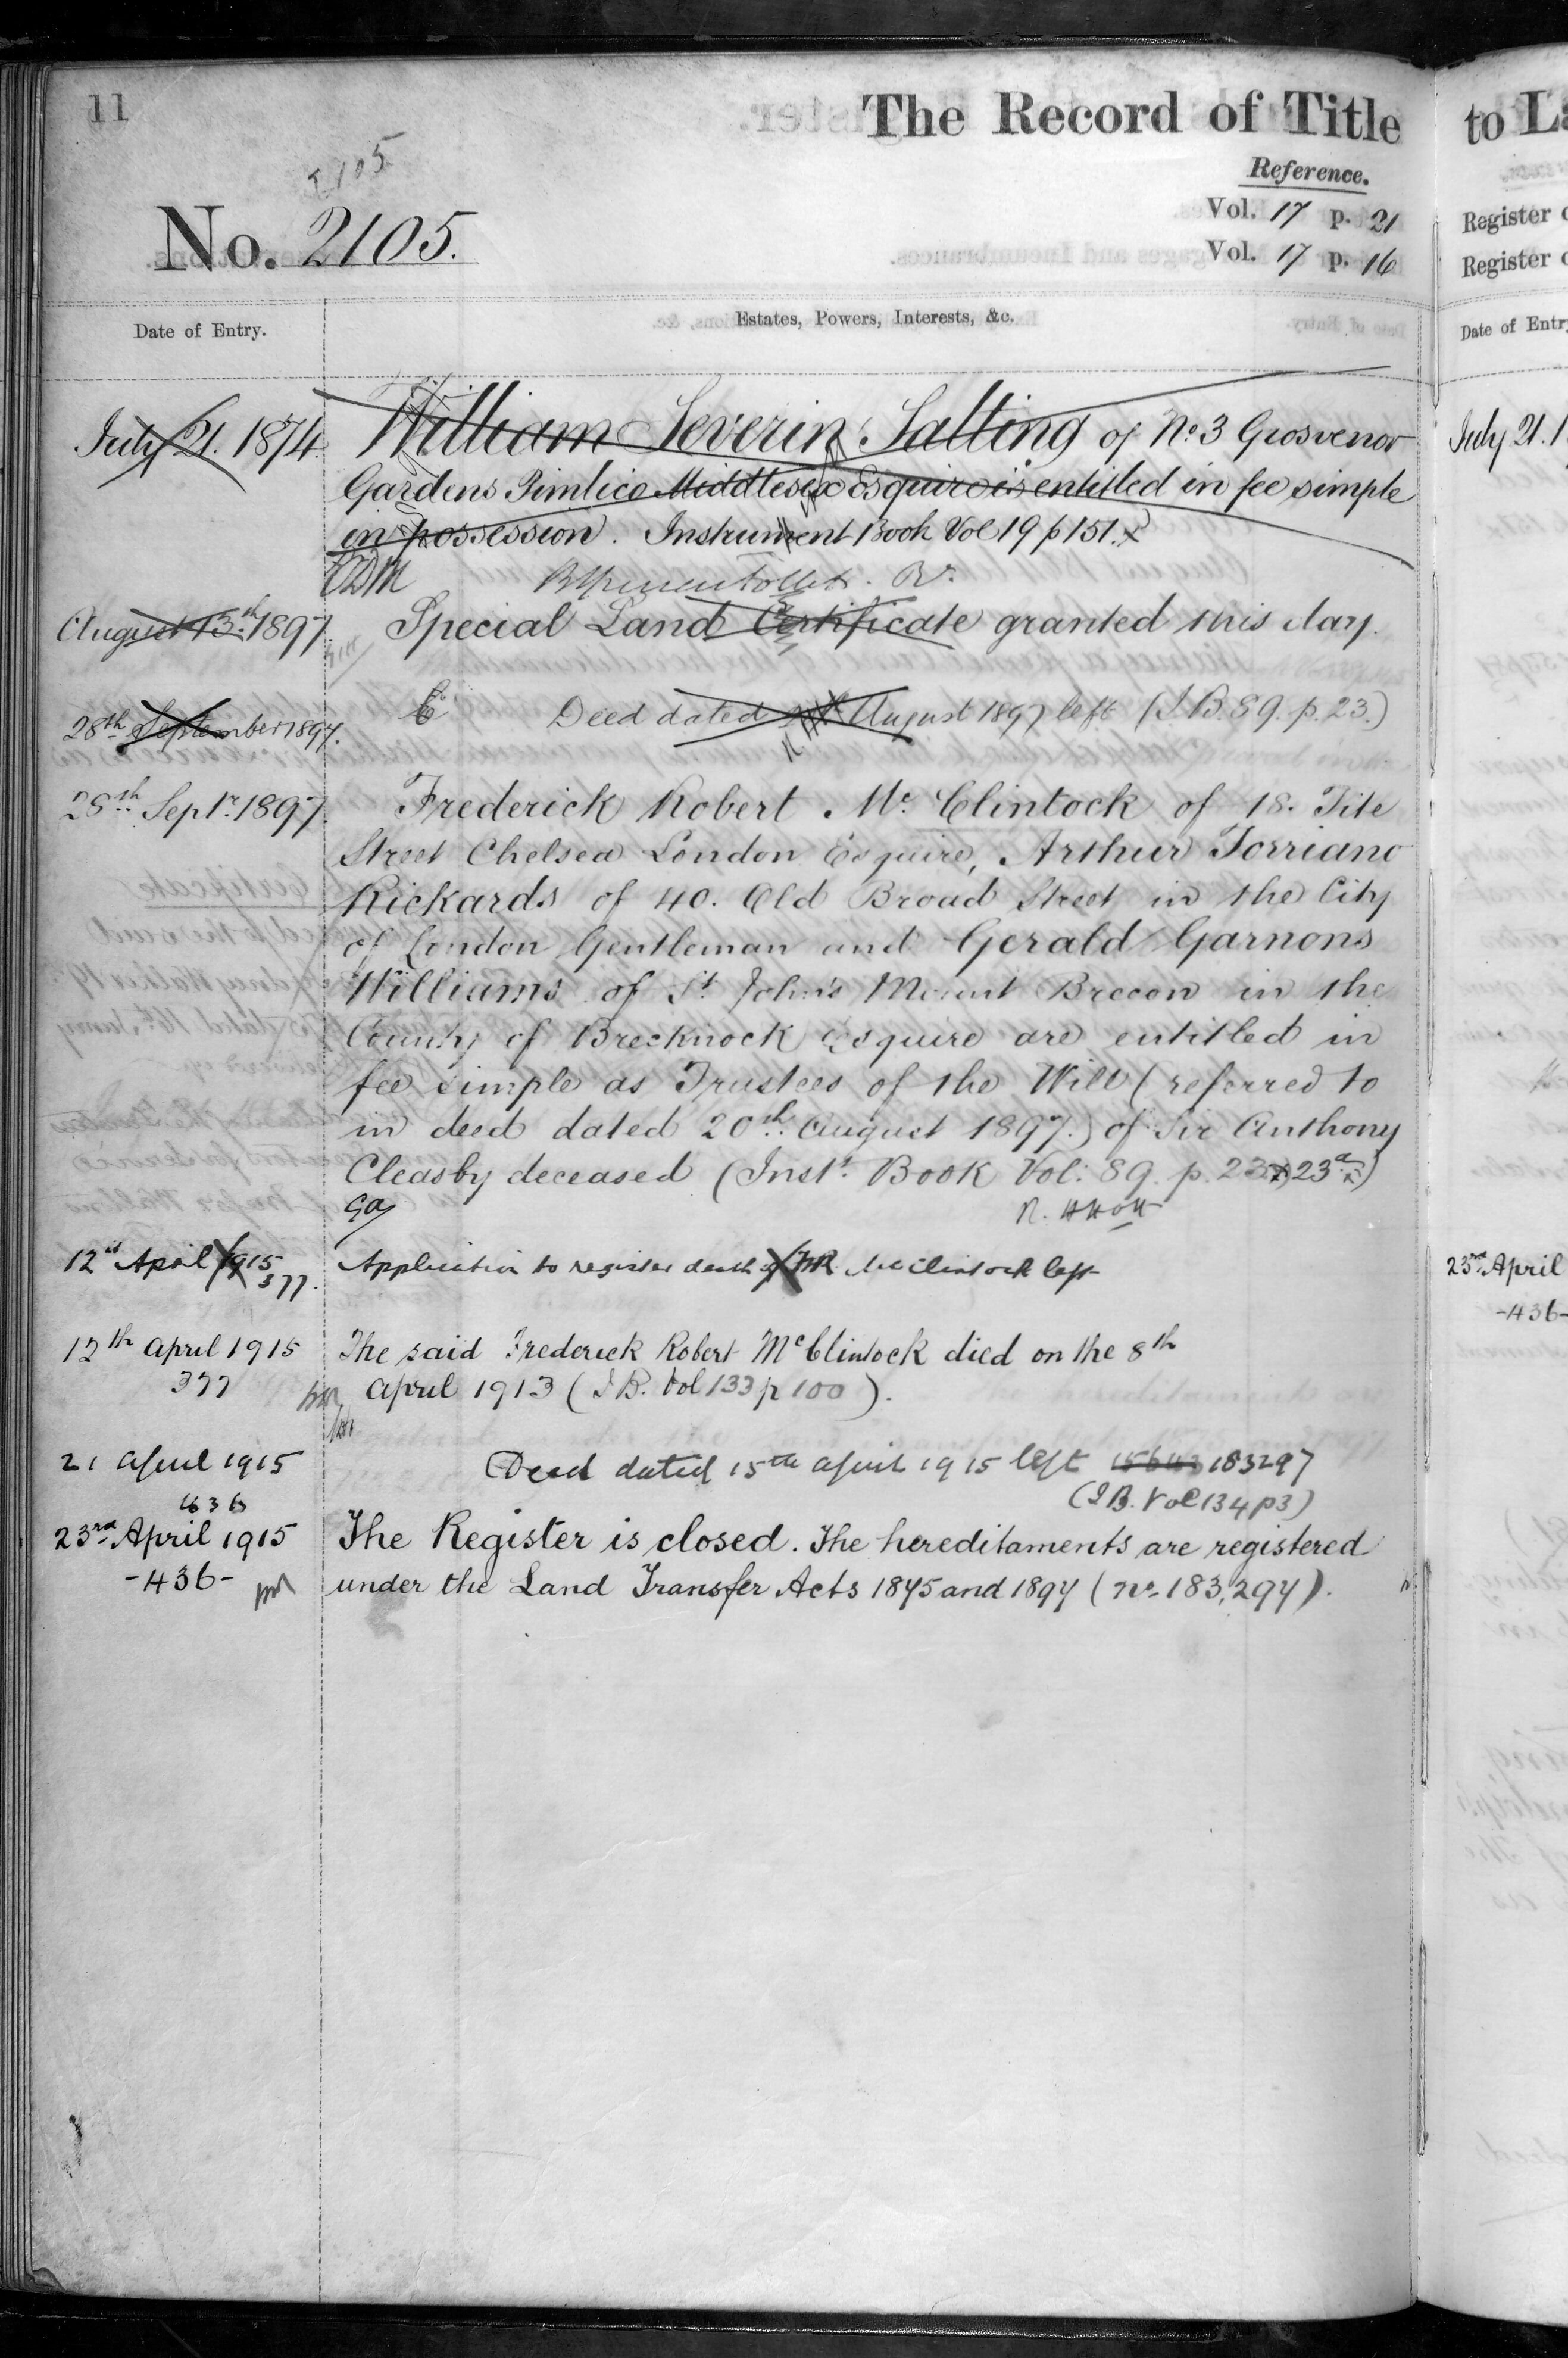 11
The Record of Title
to
2105
Reference.
No. 2105.
Vol. 17 p. 21
Vol. 17 p. 16
Register
Register
Date of Entry.
Estates, Powers, Interests, &c.
Date of Entry
July 21. 1874. William Severin Salting of No 3 Grosvenor
Gardens Pimlico Middlesex Esquire is entitled in fee simple
in possession. Instrument Book Vol 19 p 151.
August 13th 1897 Special Land Certificate granted this day.
28th September 1897. Deed dated August 1897 left (I.B. 89. p. 23.)
28th Sepr. 1897. Frederick Robert Mc Clintock of 18. Tite
Street Chelsea London Esquire, Arthur Torriano
Rickards of 40. Old Broad Street in the City
of London Gentleman and Gerald Garnons
Williams of St. John's Mount Brecon in the
County of Brecknock Esquire are entitled in
fee simple as Trustees of the Will (referred to
in deed dated 20th August 1897.) of Sir Anthony
Cleasby deceased (Inst. Book Vol: 89. p. 23 23a)
12th April 1915 Application to register death of F.R. McClintock left
377.
12th April 1915 The said Frederick Robert McClintock died on the 8th
377 April 1913 (I.B. Vol 133 p 100).
21 April 1915 Deed dated 15th April 1915 left 183297
(I.B. Vol 134 p3)
23rd April 1915 The Register is closed. The hereditaments are registered
-436- under the Land Transfer Acts 1875 and 1897 (No. 183,297).
July 21. 1
23rd April
-436-